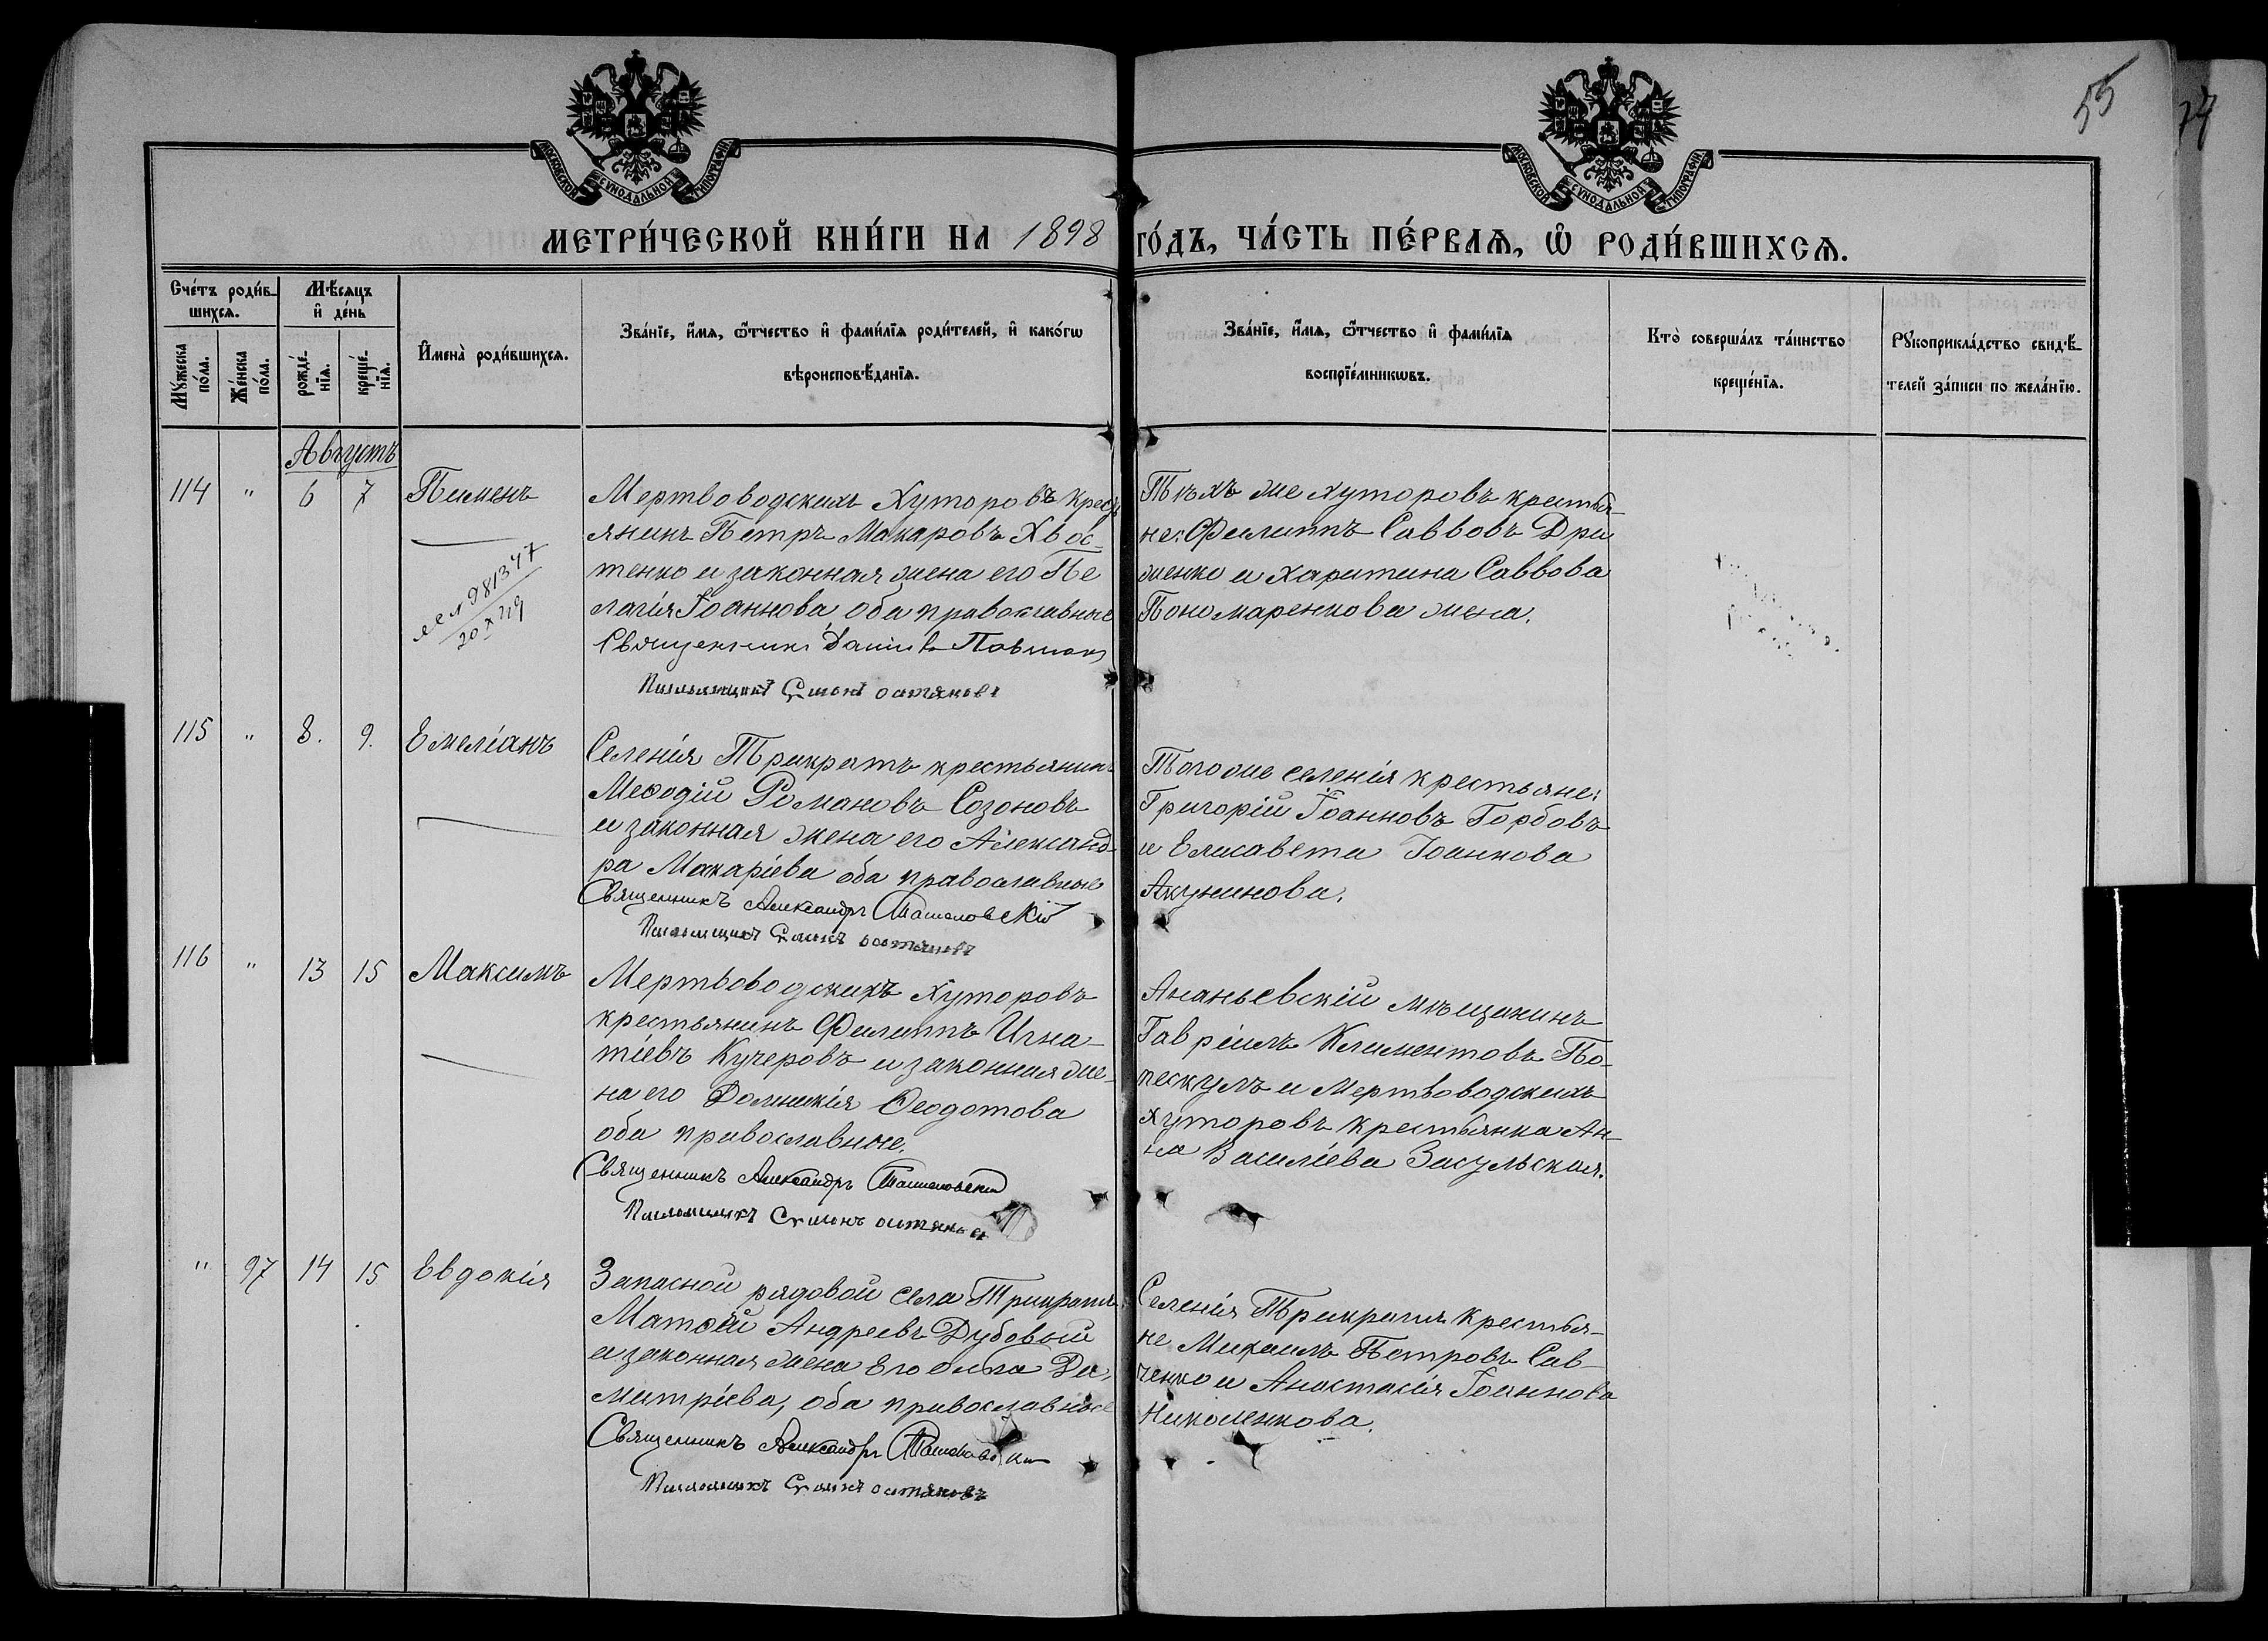 55
74
МОСКОВСКОЙ СѴНОДАЛЬНОЙ ТИПОГРАФІИ.
МОСКОВСКОЙ СѴНОДАЛЬНОЙ ТИПОГРАФІИ.
МЕТРИ́ЧЕСКОЙ КНИ́ГИ НА 1898 ГО́ДЪ, ЧА́СТЬ ПЕ́РВАѦ, Ѡ РОДИ́ВШИХСѦ.
Сче́тъ роди́в-
шихсѧ.
Мꙋ́жеска по́ла.
Же́нска по́ла.
Мѣ́сѧцъ
и҆ де́нь
рожде́-
нїѧ.
креще́-
нїѧ.
И҆мена̀ роди́вшихсѧ.
Зва́нїе, и҆́мѧ, ѻ҆́тчество и҆ фами́лїѧ роди́телей, и҆ како́гѡ
вѣроисповѣ́данїѧ.
Зва́нїе, и҆́мѧ, ѻ҆́тчество и҆ фами́лїѧ
воспрїе́мникѡвъ.
Кто̀ соверша́лъ та́инство
креще́нїѧ.
Рꙋкоприкла́дство свидѣ́-
телей за́писи по жела́нїю.
Августъ
114 " 6 7 Пименъ
981347
20 X 49
Мертвоводскихъ Хуторовъ кресть
янинъ Петръ Макаровъ Хвос-
тенко и законная жена его Пе
лагія Іоаннова, оба православные
Священникъ
Псаломщикъ
Тѣхъ же хуторовъ крестья-
не: Филиппъ Саввовъ Дри
женко и Харитина Саввова
Пономаренкова жена.
115 " 8. 9. Емеліанъ
Селенія Трикратъ крестьянинъ
Меѳодій Романовъ Созоновъ
и законная жена его Александ-
ра Макаріева оба православные
Священникъ Александръ
Псаломщикъ
Того же селенія крестьяне:
Григорій Іоанновъ Горбовъ
и Елисавета Іоаннова
Акунинова.
116 " 13 15 Максимъ
Мертвоводскихъ Хуторовъ
крестьянинъ Филиппъ Игна-
тіевъ Кучеровъ и законная же-
на его Домникія Ѳеодотова
оба православные.
Священникъ Александръ
Псаломщикъ
Ананьевскій мѣщанинъ
Гавріилъ Климентовъ По-
пескулъ и Мертвоводскихъ
хуторовъ крестьянка Ан-
на Василіева Засульская.
" 97 14 15 Евдокія
Запасной рядовой села Трикратъ
Матѳій Андреевъ Дубовый
и законная жена Его Ольга Ди-
митріева, оба православные
Священникъ Александръ
Псаломщикъ
Селенія Трикратъ крестья-
не Михаилъ Петровъ Сав-
ченко и Анастасія Іоаннова
Николенкова.